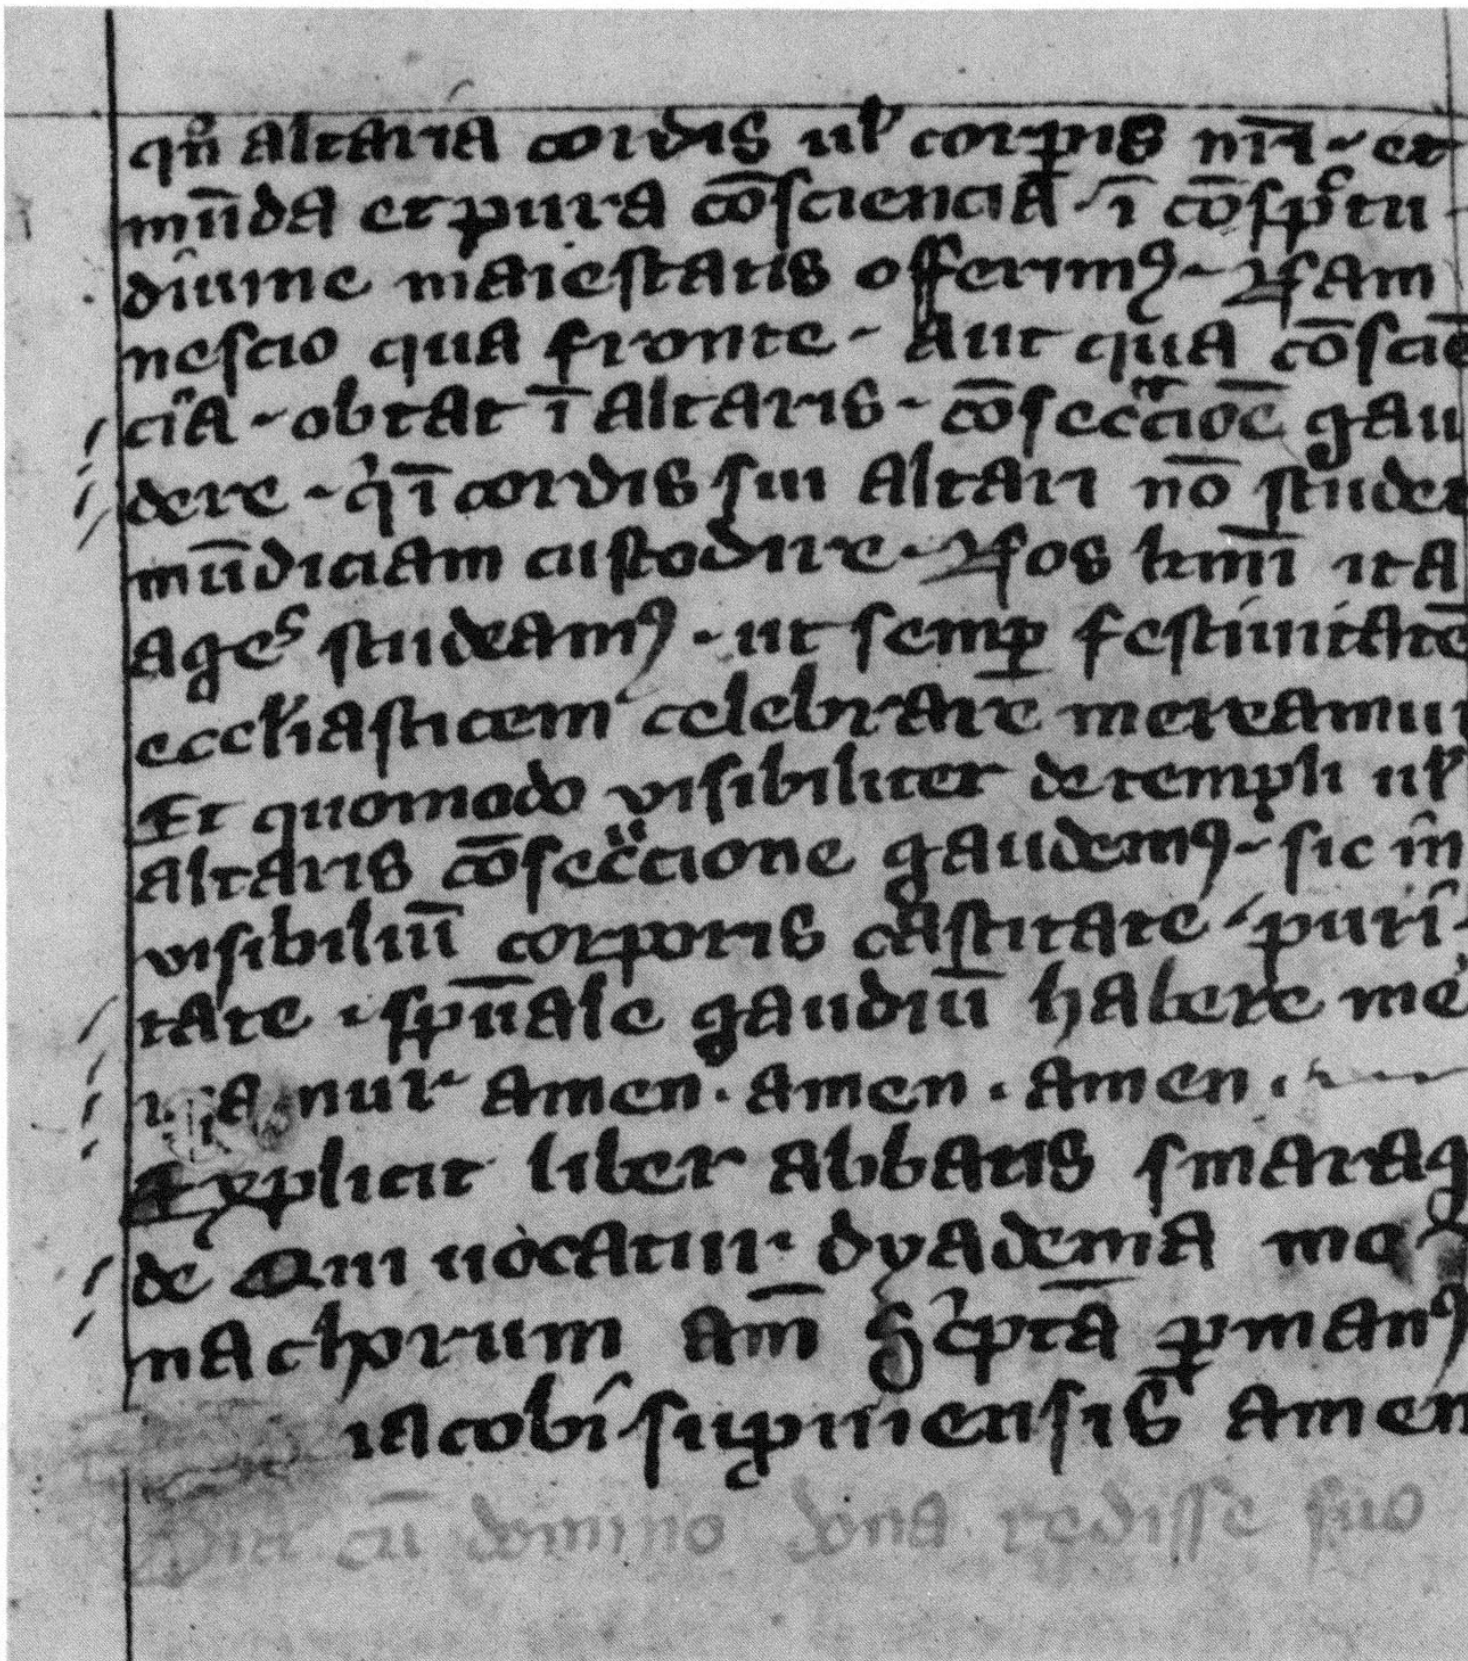 qn̄ altaria cordis ul̓ corꝑis nr̄i et
mūda et pura cōsciencia ī cōsp̄ctu
diuine maiestatis offerimꝰ Nam
nescio qua fronte Aut qua cōsciē
cia obtat ī altaris cōsecracioē gau
dere qͥ ī cordis sui altari nō studet
mūdiciam custodire Nos km̄i ita
agēs studeamꝰ ut semꝑ festiuitatē
eccl̓iasticem celebrare mereamur
Et quomodo visibiliter de templi ul̓
altaris cōsecracione gaudemꝰ sic in
visibiliū corporis castitate puri
tate sp̄uale gaudiū habere me
rea nur amen . amen . amen .
Explicit liber abbatis smarag
de Qui uocatur dyadema mo
nachorum am̄ scͥpta ꝑ manꝰ
iacobi amen
cū domino dona redisse suo